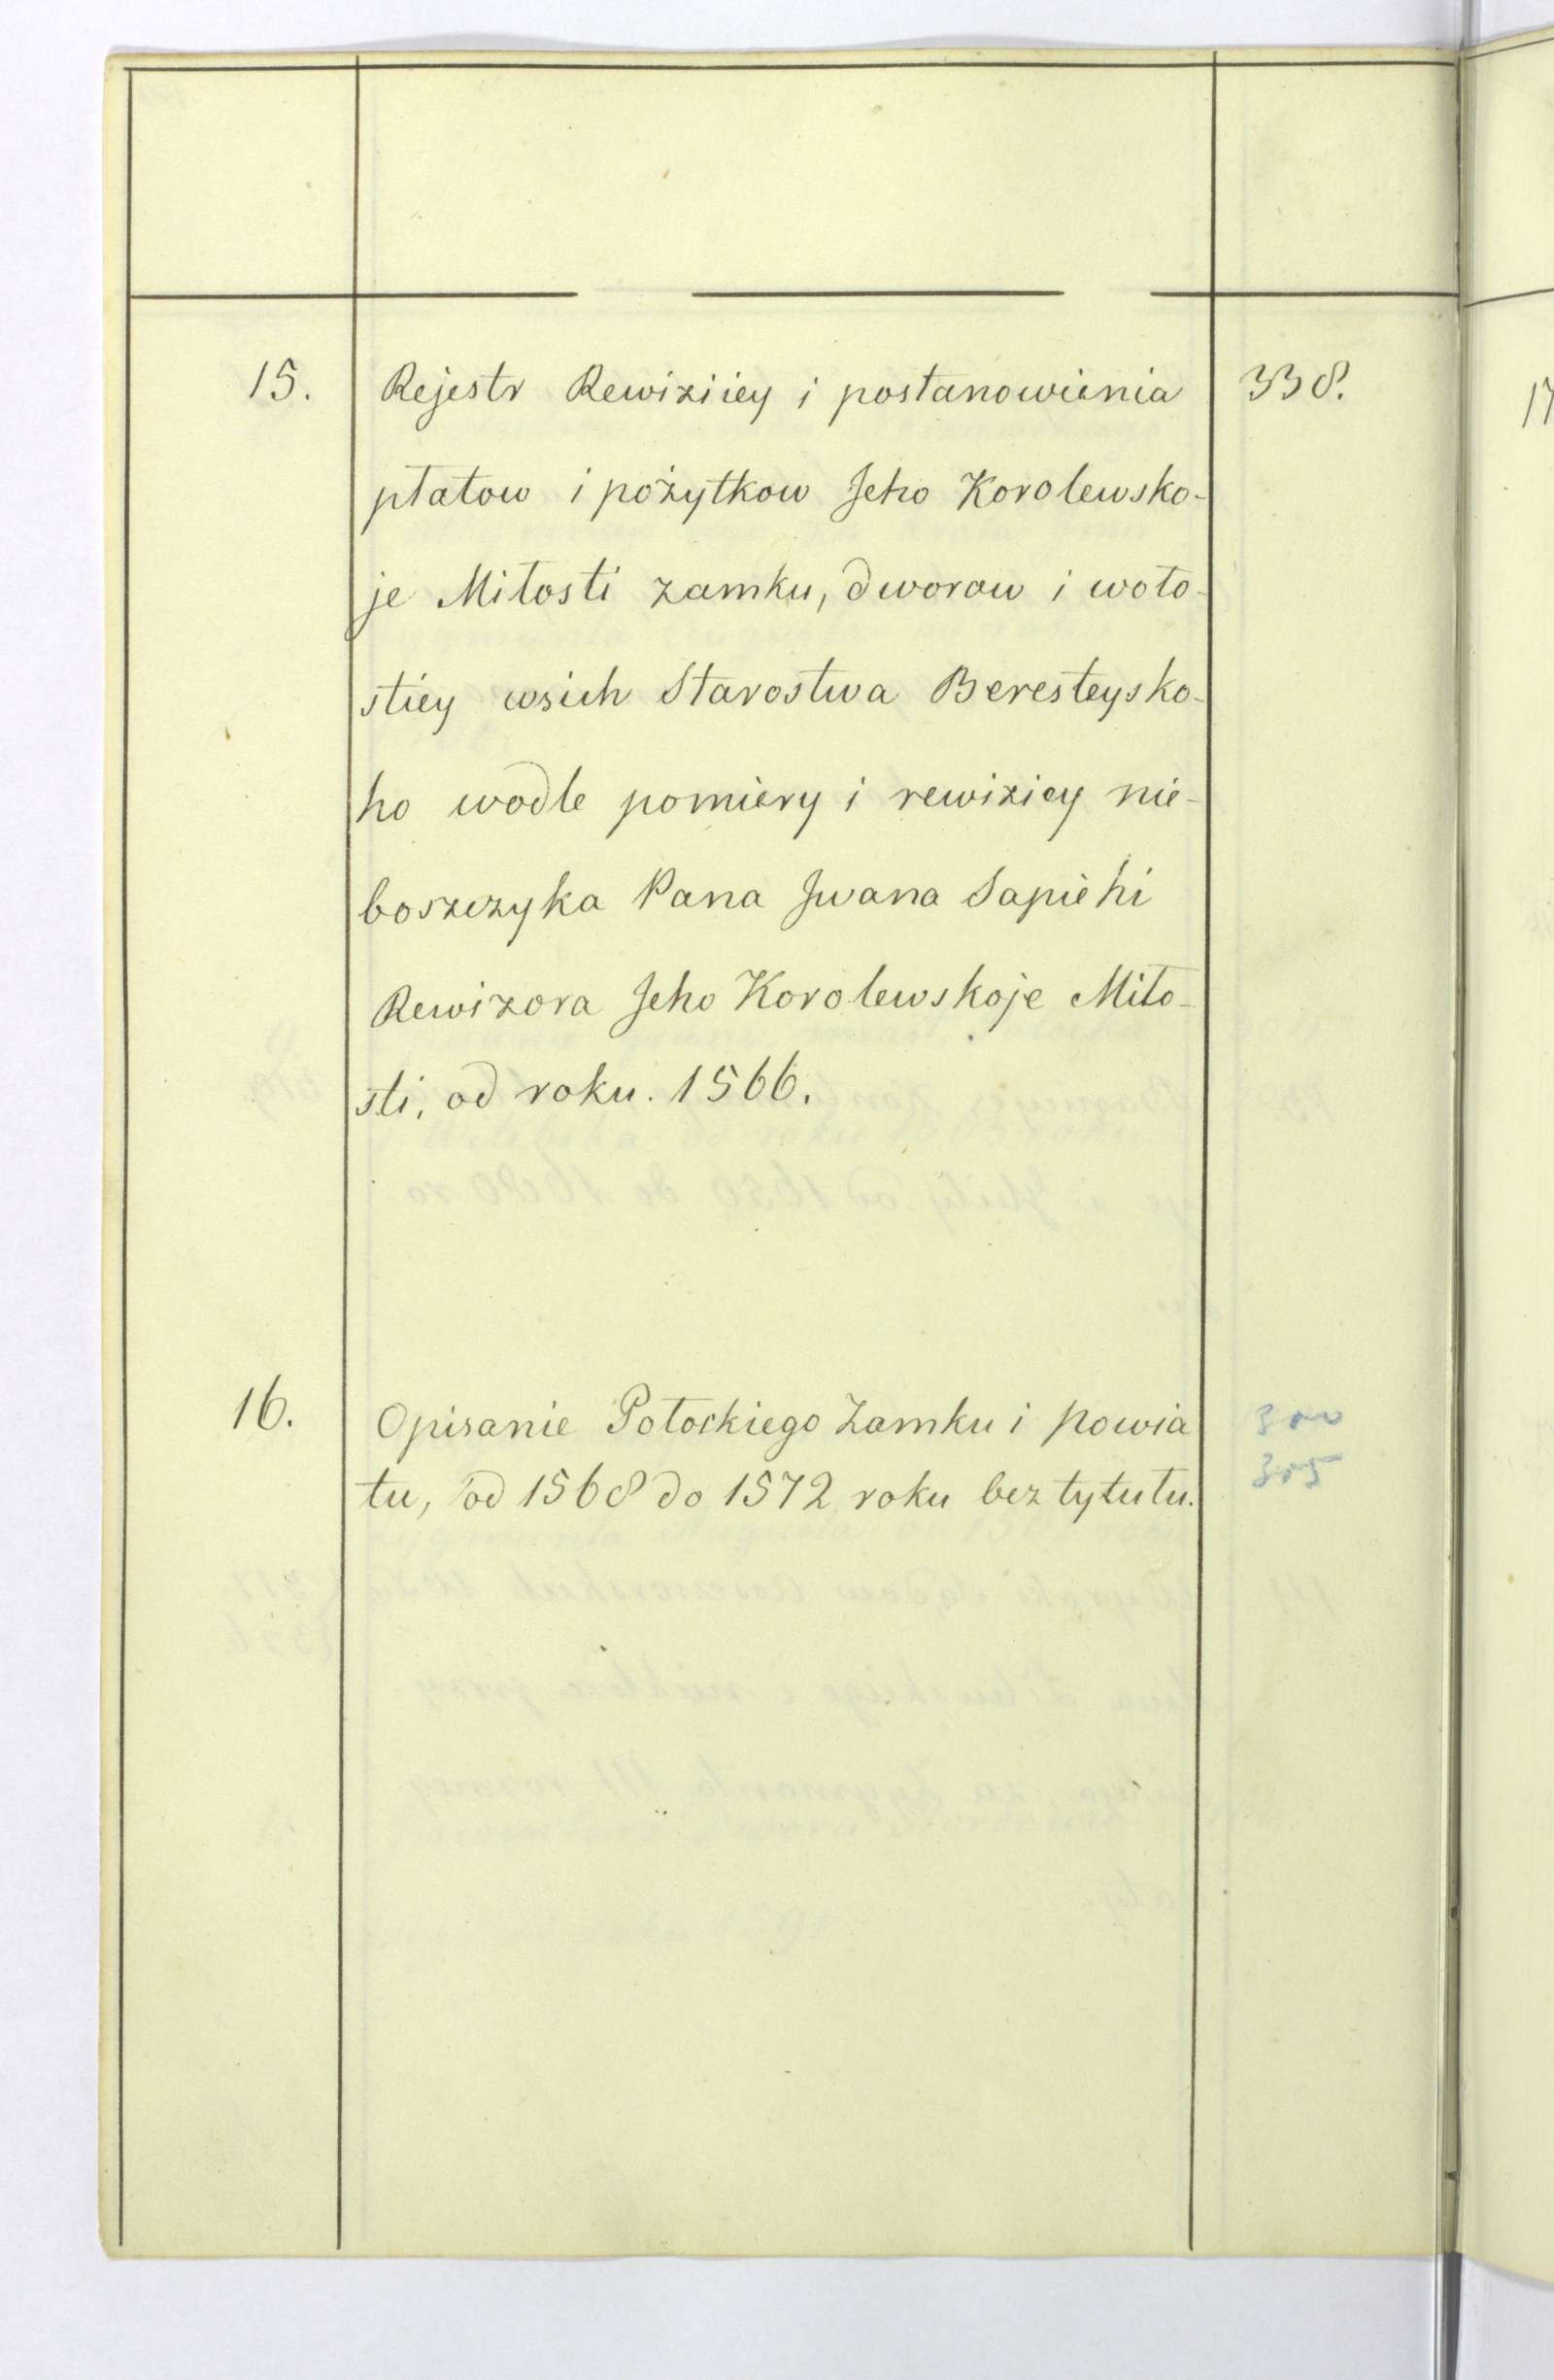 15. Rejestr Rewiziiey i postanowienia 338.
płatow i pożytkow Jeho Korolewsko-
je Miłosti zamku, dworow i woło-
stiey wsich Starostwa Beresteysko-
ho wodle pomiery i rewiziey nie-
boszczyka Pana Jwana Sapiehi
Rewizora Jeho Korolewskoje Miło-
sti, od roku. 1566.
16. Opisanie Połockiego Zamku i powia
tu, od 1568 do 1572 roku bez tytułu. 305